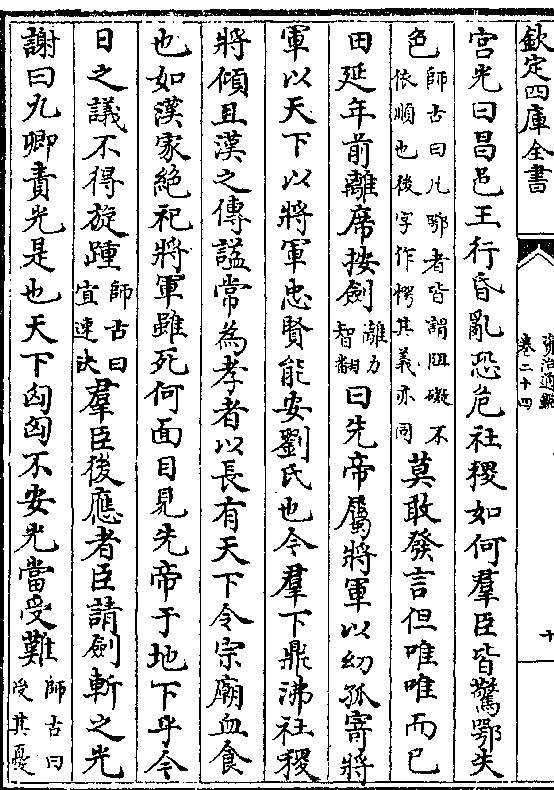 欽定四庫全書
資治通鑑
卷二十四
十
宮光曰昌邑王行昏亂恐危社稷如何羣臣皆驚鄂失
色師古曰凡鄂者皆謂阻礙不依順也後字作愕其義亦同莫敢發言但唯唯而已
田延年前離席按劍離力智翻曰先帝屬將軍以幼孤寄將
軍以天下以將軍忠賢能安劉氏也今羣下鼎沸社稷
將傾且漢之傳諡常為孝者以長有天下令宗廟血食
也如漢家絶祀將軍雖死何面目見先帝于地下乎今
日之議不得旋踵師古曰宜速決羣臣後應者臣請劍斬之光
謝曰九卿責光是也天下匈匈不安光當受難師古曰受其憂